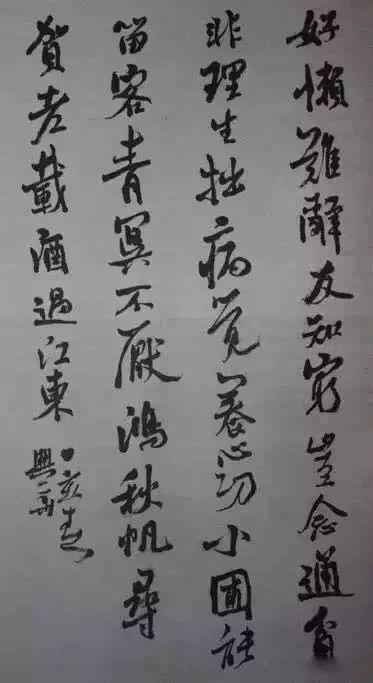 好懶難辭友知窮豈念通貧
非理生拙病覺養心功小圃能
留客青冥不厭鴻秋帆尋
賀老載酒過江東
亥春